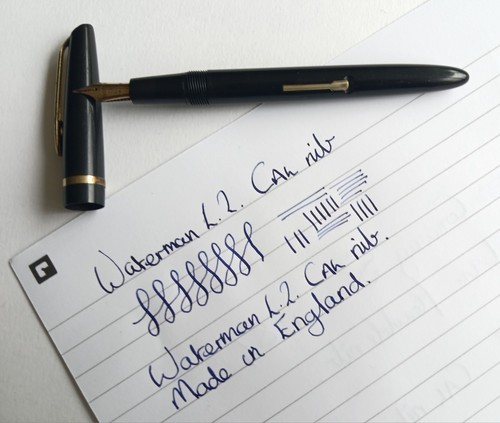 Waterman L.2. CAn nib
Waterman L.2. CAn nib.
Made in England.